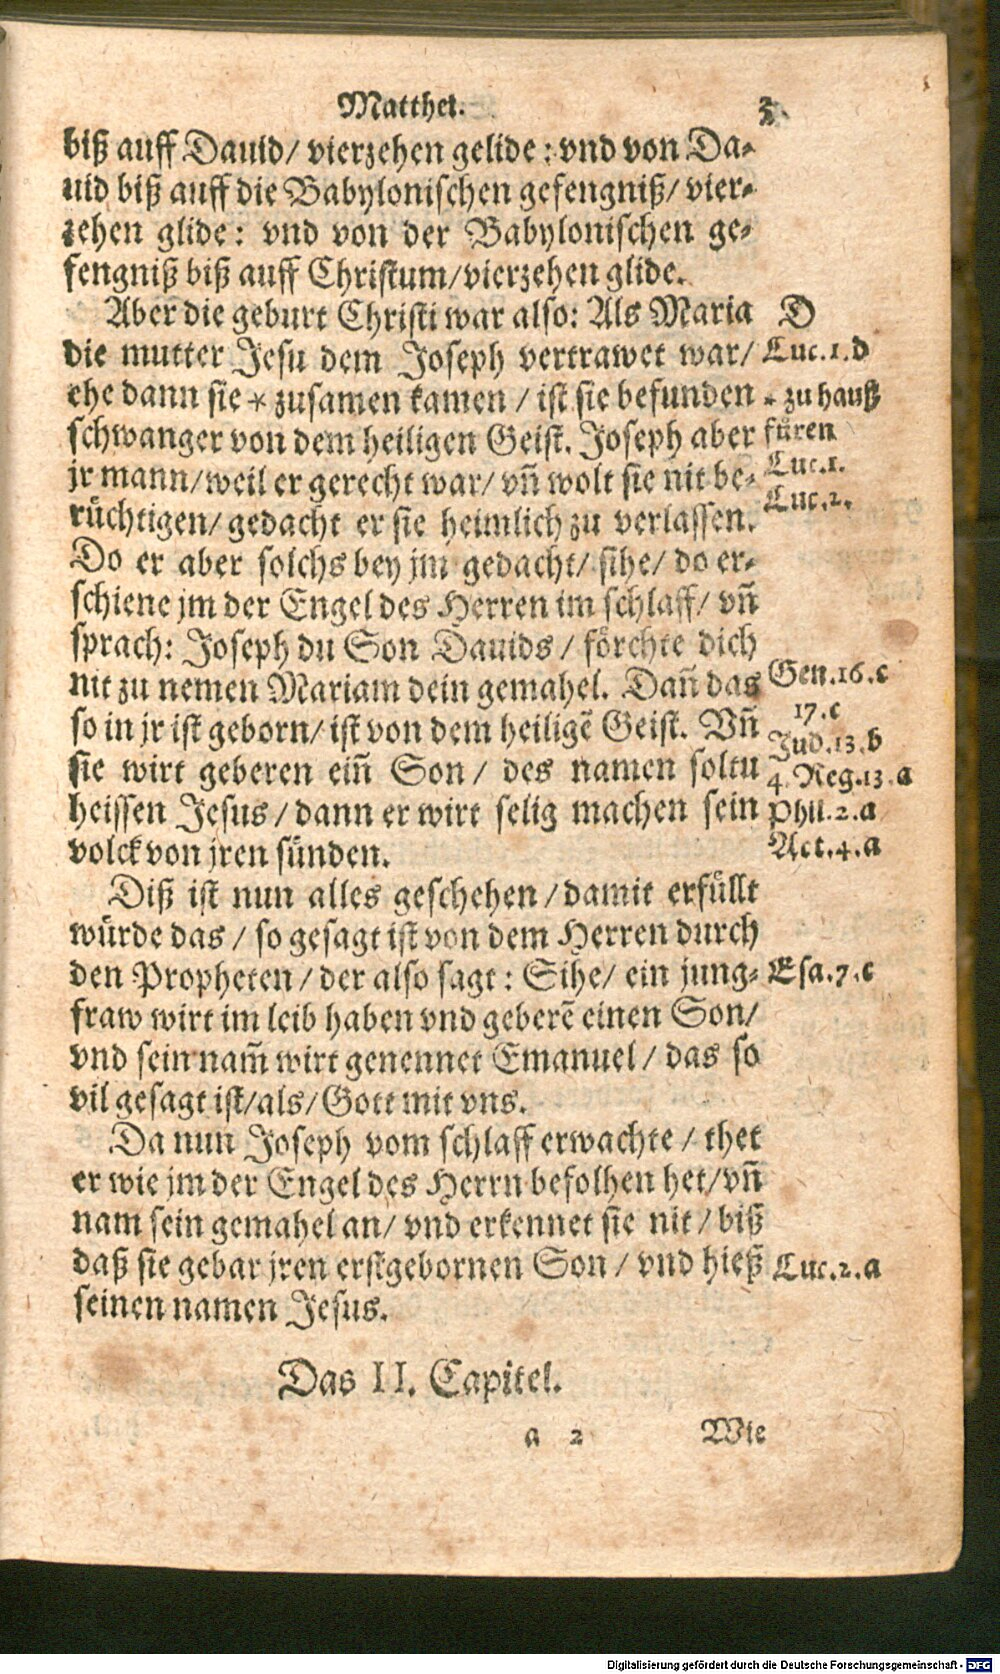 Matthei. 2
biß auff Dauid/ vierzehen gelide: vnd von Da-
uid biß auff die Babylonischen gefengniß/ vier-
zehen glide: vnd von der Babylonischen ge-
fengniß biß auff Christum/ vierzehen glide.
Aber die geburt Christi war also: Als Maria D
die mutter Jesu dem Joseph vertrawet war/ Luc.1.d
ehe dann sie * zusamen kamen / ist sie befunden * zu hauß
schwanger von dem heiligen Geist. Joseph aber füren
jr mann/ weil er gerecht war/ vñ wolt sie nit be- Luc.1.
rüchtigen/ gedacht er sie heimlich zu verlassen. Luc.2.
Do er aber solchs bey jm gedacht/ sihe/ do er-
schiene jm der Engel des Herren im schlaff/ vñ
sprach: Joseph du Son Dauids / förchte dich
nit zu nemen Mariam dein gemahel. Dañ das Gen.16.c
17.c
so in jr ist geborn/ ist von dem heiligẽ Geist. Vñ Jud.13.b
sie wirt geberen eiñ Son / des namen soltu 4.Reg.13.a
heissen Jesus / dann er wirt selig machen sein Phil.2.a
volck von jren sünden. Act.4.a
Diß ist nun alles geschehen / damit erfüllt
würde das / so gesagt ist von dem Herren durch
den Propheten / der also sagt: Sihe/ ein jung- Esa.7.c
fraw wirt im leib haben vnd geberẽ einen Son/
vnd sein nam̃ wirt genennet Emanuel / das so
vil gesagt ist/ als/ Gott mit vns.
Da nun Joseph vom schlaff erwachte / thet
er wie jm der Engel des Herrn befolhen het/ vñ
nam sein gemahel an/ vnd erkennet sie nit / biß
daß sie gebar jren erstgebornen Son / vnd hieß Luc.2.a
seinen namen Jesus.
Das II. Capitel.
a 2 Wie
Digitalisierung gefördert durch die Deutsche Forschungsgemeinschaft - DFG